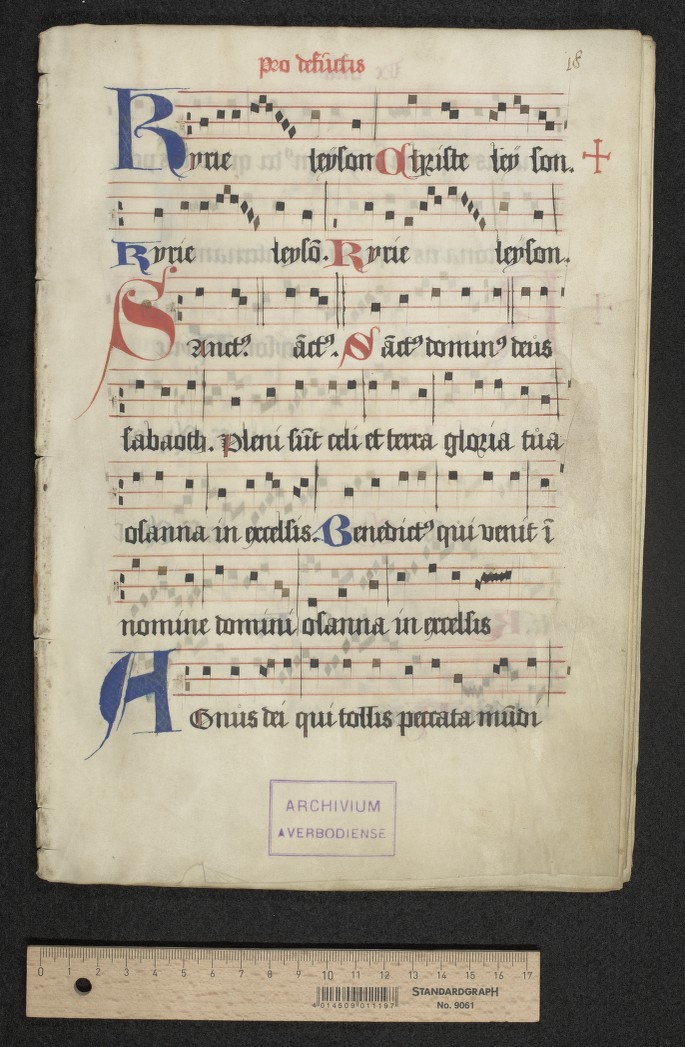 pro defūctis
18
Kyrie leyson Christe ley son.
Kyrie leysō. Kyrie leyson.
Sanctꝰ. āctꝰ. Sāctꝰ dominꝰ deus
sabaoth. Pleni sūt celi et terra gloria tua
osanna in excelsis. Benedictꝰ qui venit ī
nomine domini osanna in excelsis
AGnus dei qui tollis peccata mūdi
ARCHIVIUM
AVERBODIENSE
0 1 2 3 4 5 6 7 8 9 10 11 12 13 14 15 16 17
4 014509 011197
STANDARDGRAPH
No. 9061